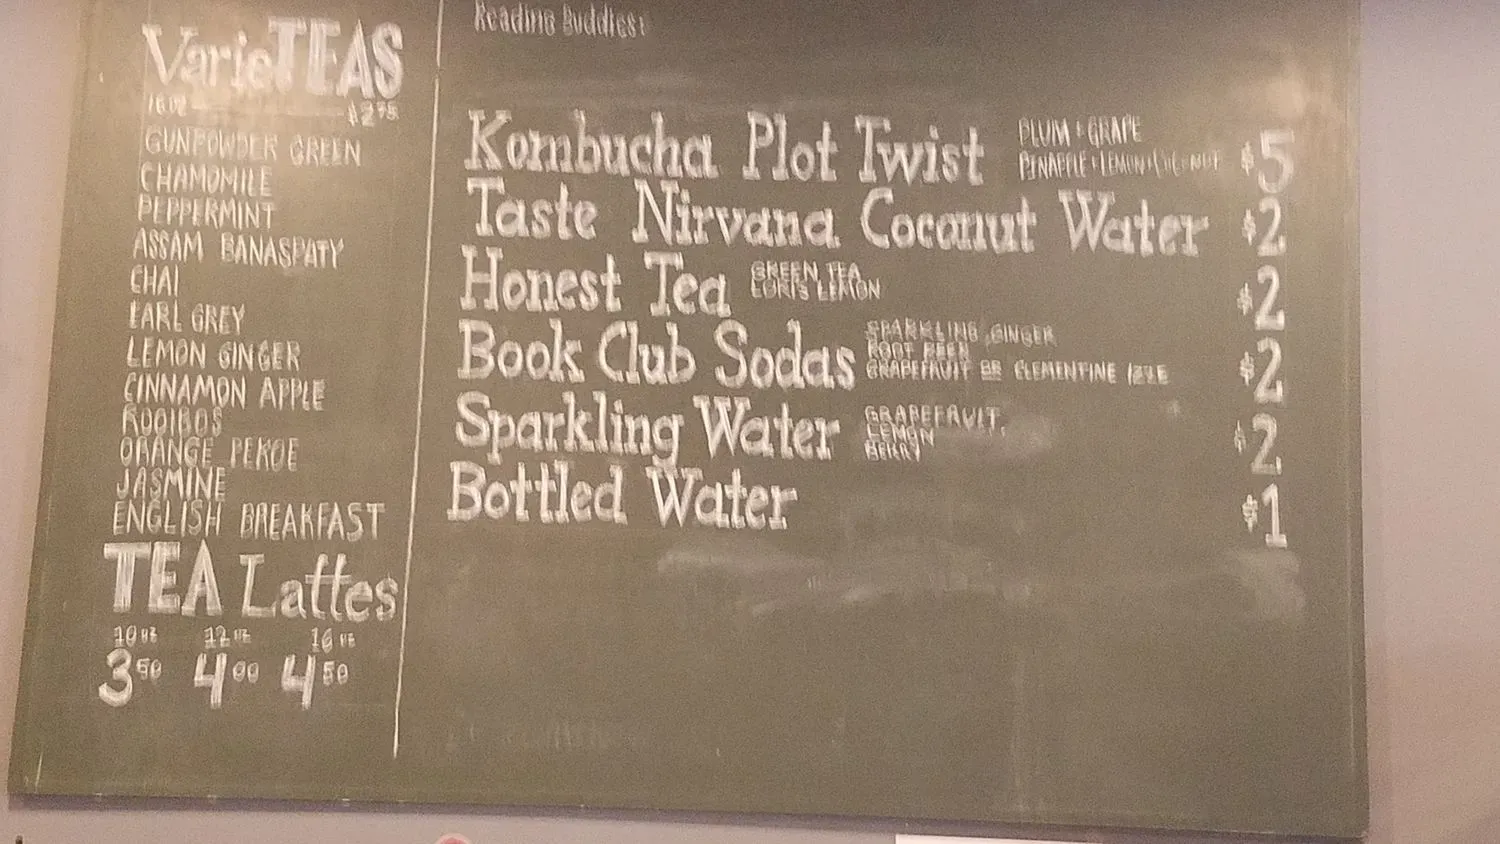 VarieTEAS
16 oz $2.75
GUNPOWDER GREEN
CHAMOMILE
PEPPERMINT
ASSAM BANASPATY
CHAI
EARL GREY
LEMON GINGER
CINNAMON APPLE
ROOIBOS
ORANGE PEKOE
JASMINE
ENGLISH BREAKFAST
TEA Lattes
10 oz 12 oz 16 oz
3 50 4 00 4 50
Reading Buddies:
Kombucha Plot Twist PLUM & GRAPE $5
PINAPPLE + LEMON + COCONUT
Taste Nirvana Coconut Water $2
Honest Tea GREEN TEA $2
LORI'S LEMON
Book Club Sodas SPARKLING GINGER $2
ROOT BEER
GRAPEFRUIT OR CLEMENTINE IZZE
Sparkling Water GRAPEFRUIT $2
LEMON
BERRY
Bottled Water $1